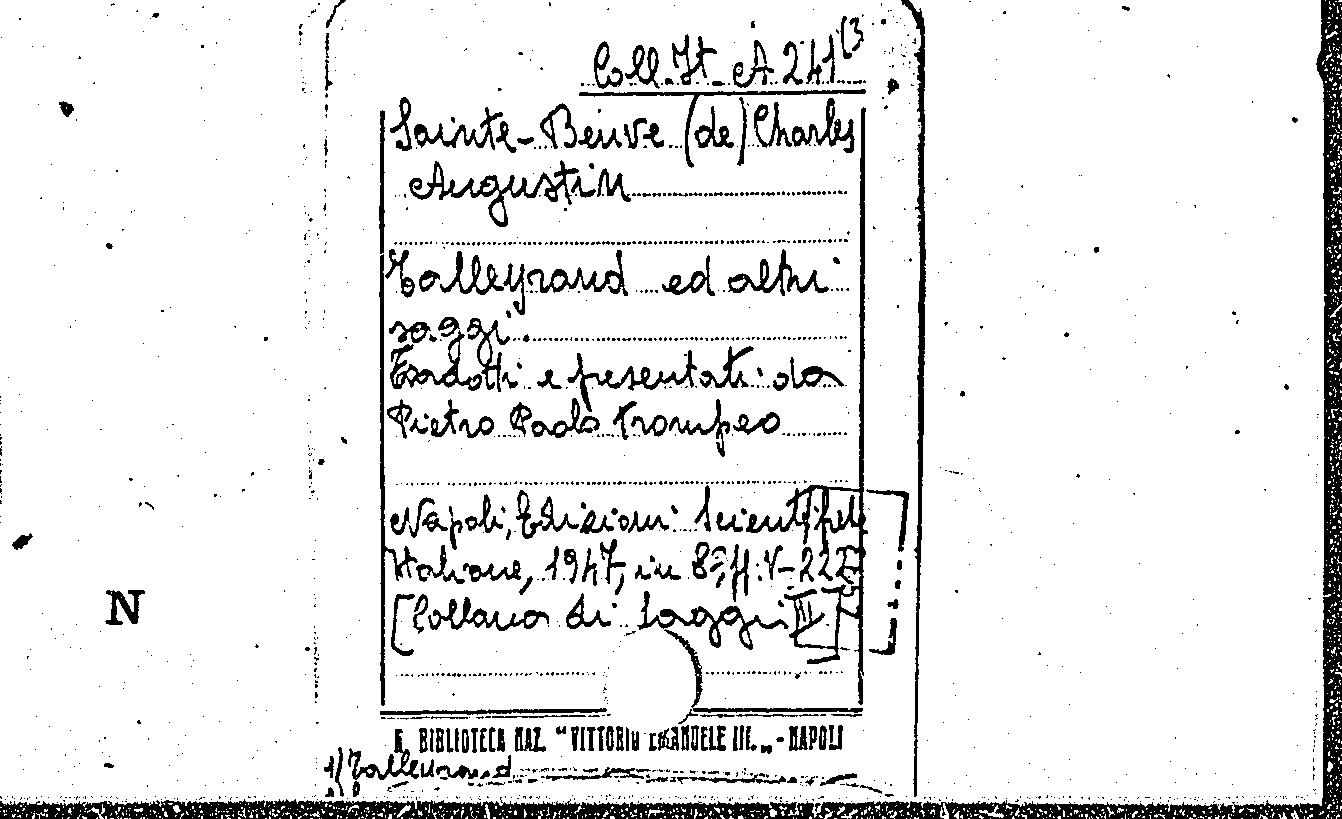 Coll. It. A 241(3
Sainte-Beuve (de) Charles
Augustin
Talleyrand ed altri
saggi.
Tradotti e presentati da
Pietro Paolo Trompeo
Napoli, Edizioni Scientifiche
Italiane, 1947, in 8°, pp. V-222
[Collana di Saggi III]
N
R. BIBLIOTECA NAZ. "VITTORIO EMANUELE III." - NAPOLI
1) Talleyrand